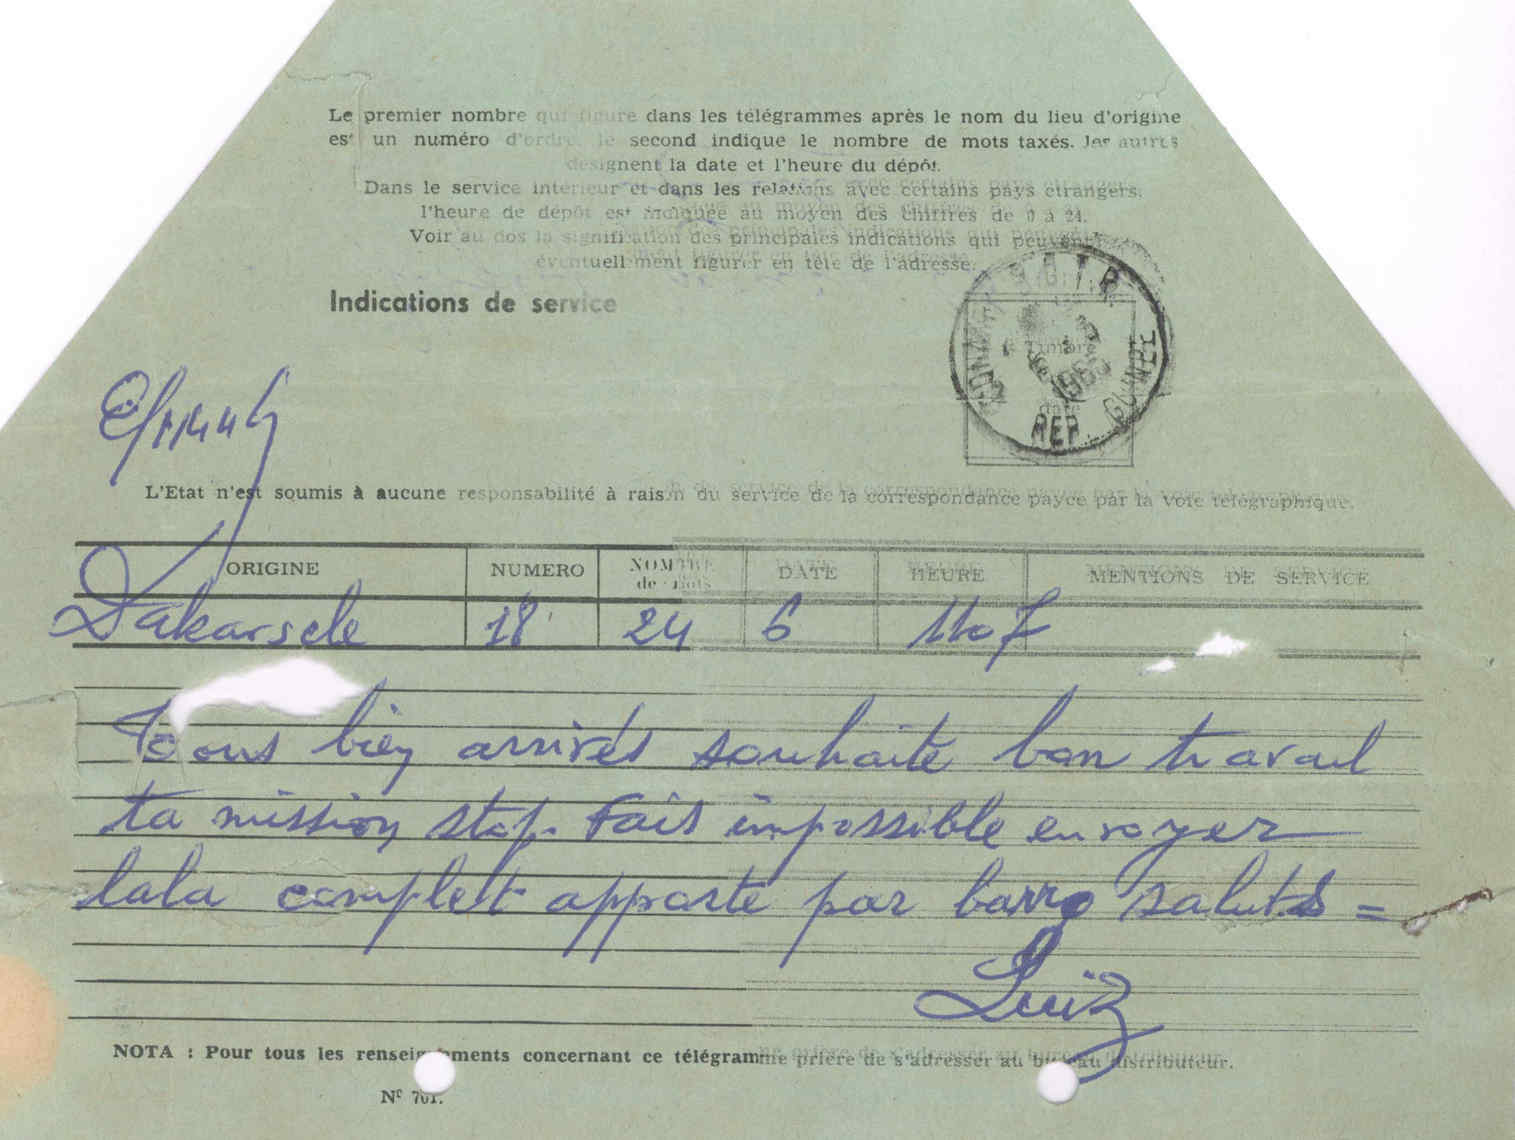 Le premier nombre qui figure dans les télégrammes après le nom du lieu d'origine
est un numéro d'ordre, le second indique le nombre de mots taxés, les autres
désignent la date et l'heure du dépôt.
Dans le service intérieur et dans les relations avec certains pays étrangers,
l'heure de dépôt est indiquée au moyen des chiffres de 0 à 24.
Voir au dos la signification des principales indications qui peuvent
éventuellement figurer en tête de l'adresse.
Indications de service
Timbre
REP. GUINEE
L'Etat n'est soumis à aucune responsabilité à raison du service de la correspondance payée par la voie télégraphique.
ORIGINE NUMERO NOMBRE de mots DATE HEURE MENTIONS DE SERVICE
Dakarsele 18 24 6 1107
Tous bien arrivés souhaite bon travail
ta mission stop. Fais impossible envoyer
lala complet apporté par barro saluts =
Luiz
NOTA : Pour tous les renseignements concernant ce télégramme prière de s'adresser au bureau distributeur.
N° 701.